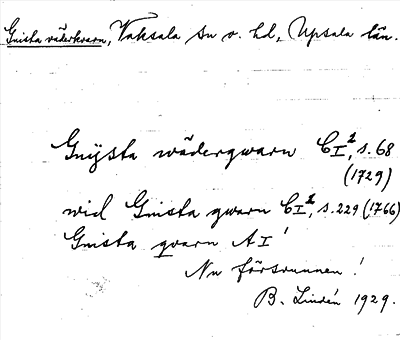 Gnista väderkvarn, Vaksala sn o. hd, Upsala län.
Gnÿsta wädergwarn CI², s. 68
(1729)
wid Gnista qwarn CI², s. 229 (1766)
Gnista qvarn AI'
Nu försvunnen!
B. Lindén 1929.